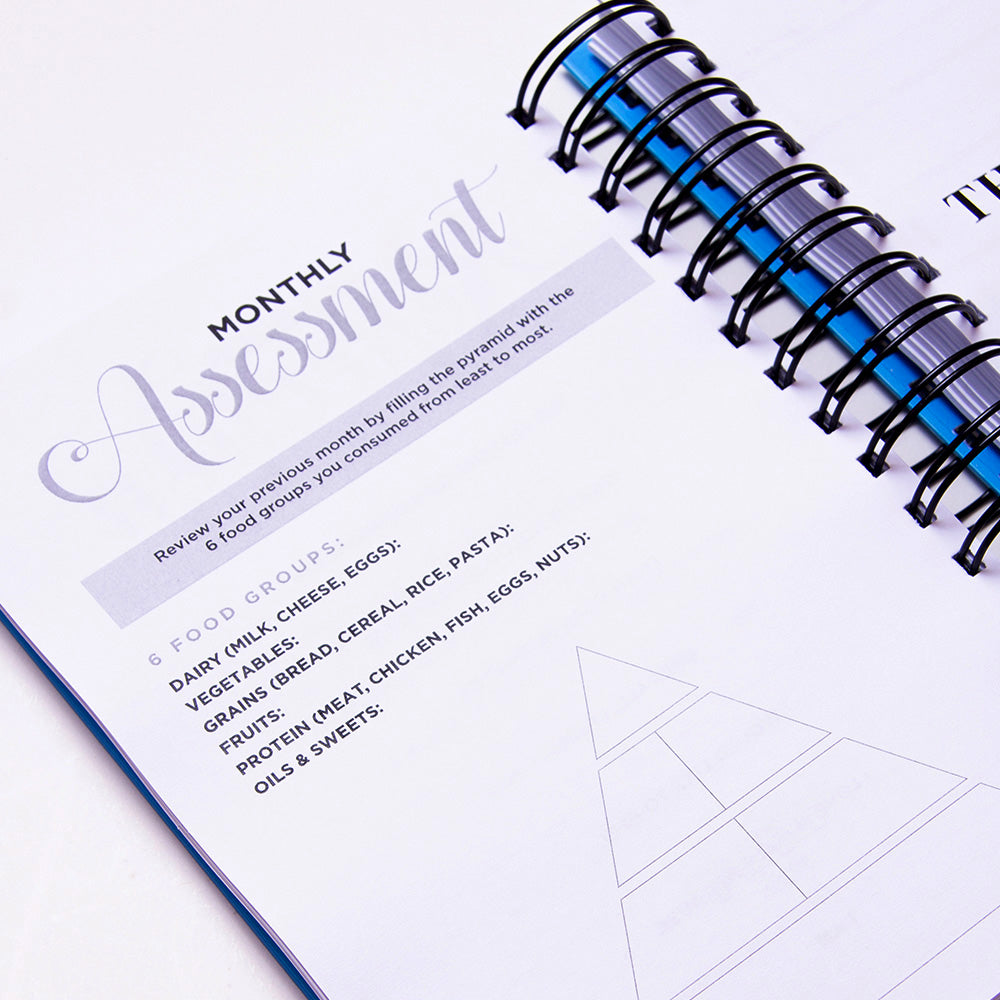 MONTHLY
Assessment
Review your previous month by filling the pyramid with the
6 food groups you consumed from least to most.
6 FOOD GROUPS:
DAIRY (MILK, CHEESE, EGGS):
VEGETABLES:
GRAINS (BREAD, CEREAL, RICE, PASTA):
FRUITS:
PROTEIN (MEAT, CHICKEN, FISH, EGGS, NUTS):
OILS & SWEETS: